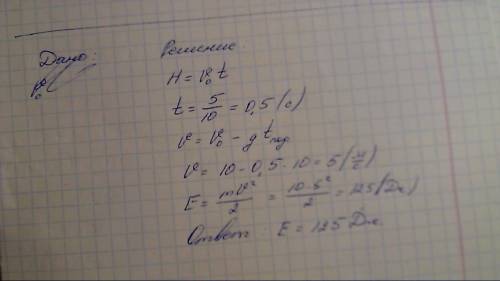 Дано: Решение
H = v₀t
t = 5/10 = 0,5 (с)
v = v₀ - gt под
v = 10 - 0,5 · 10 = 5 (м/с)
E = mv²/2 = 10·5²/2 = 125 (Дж)
Ответ: E = 125 Дж.